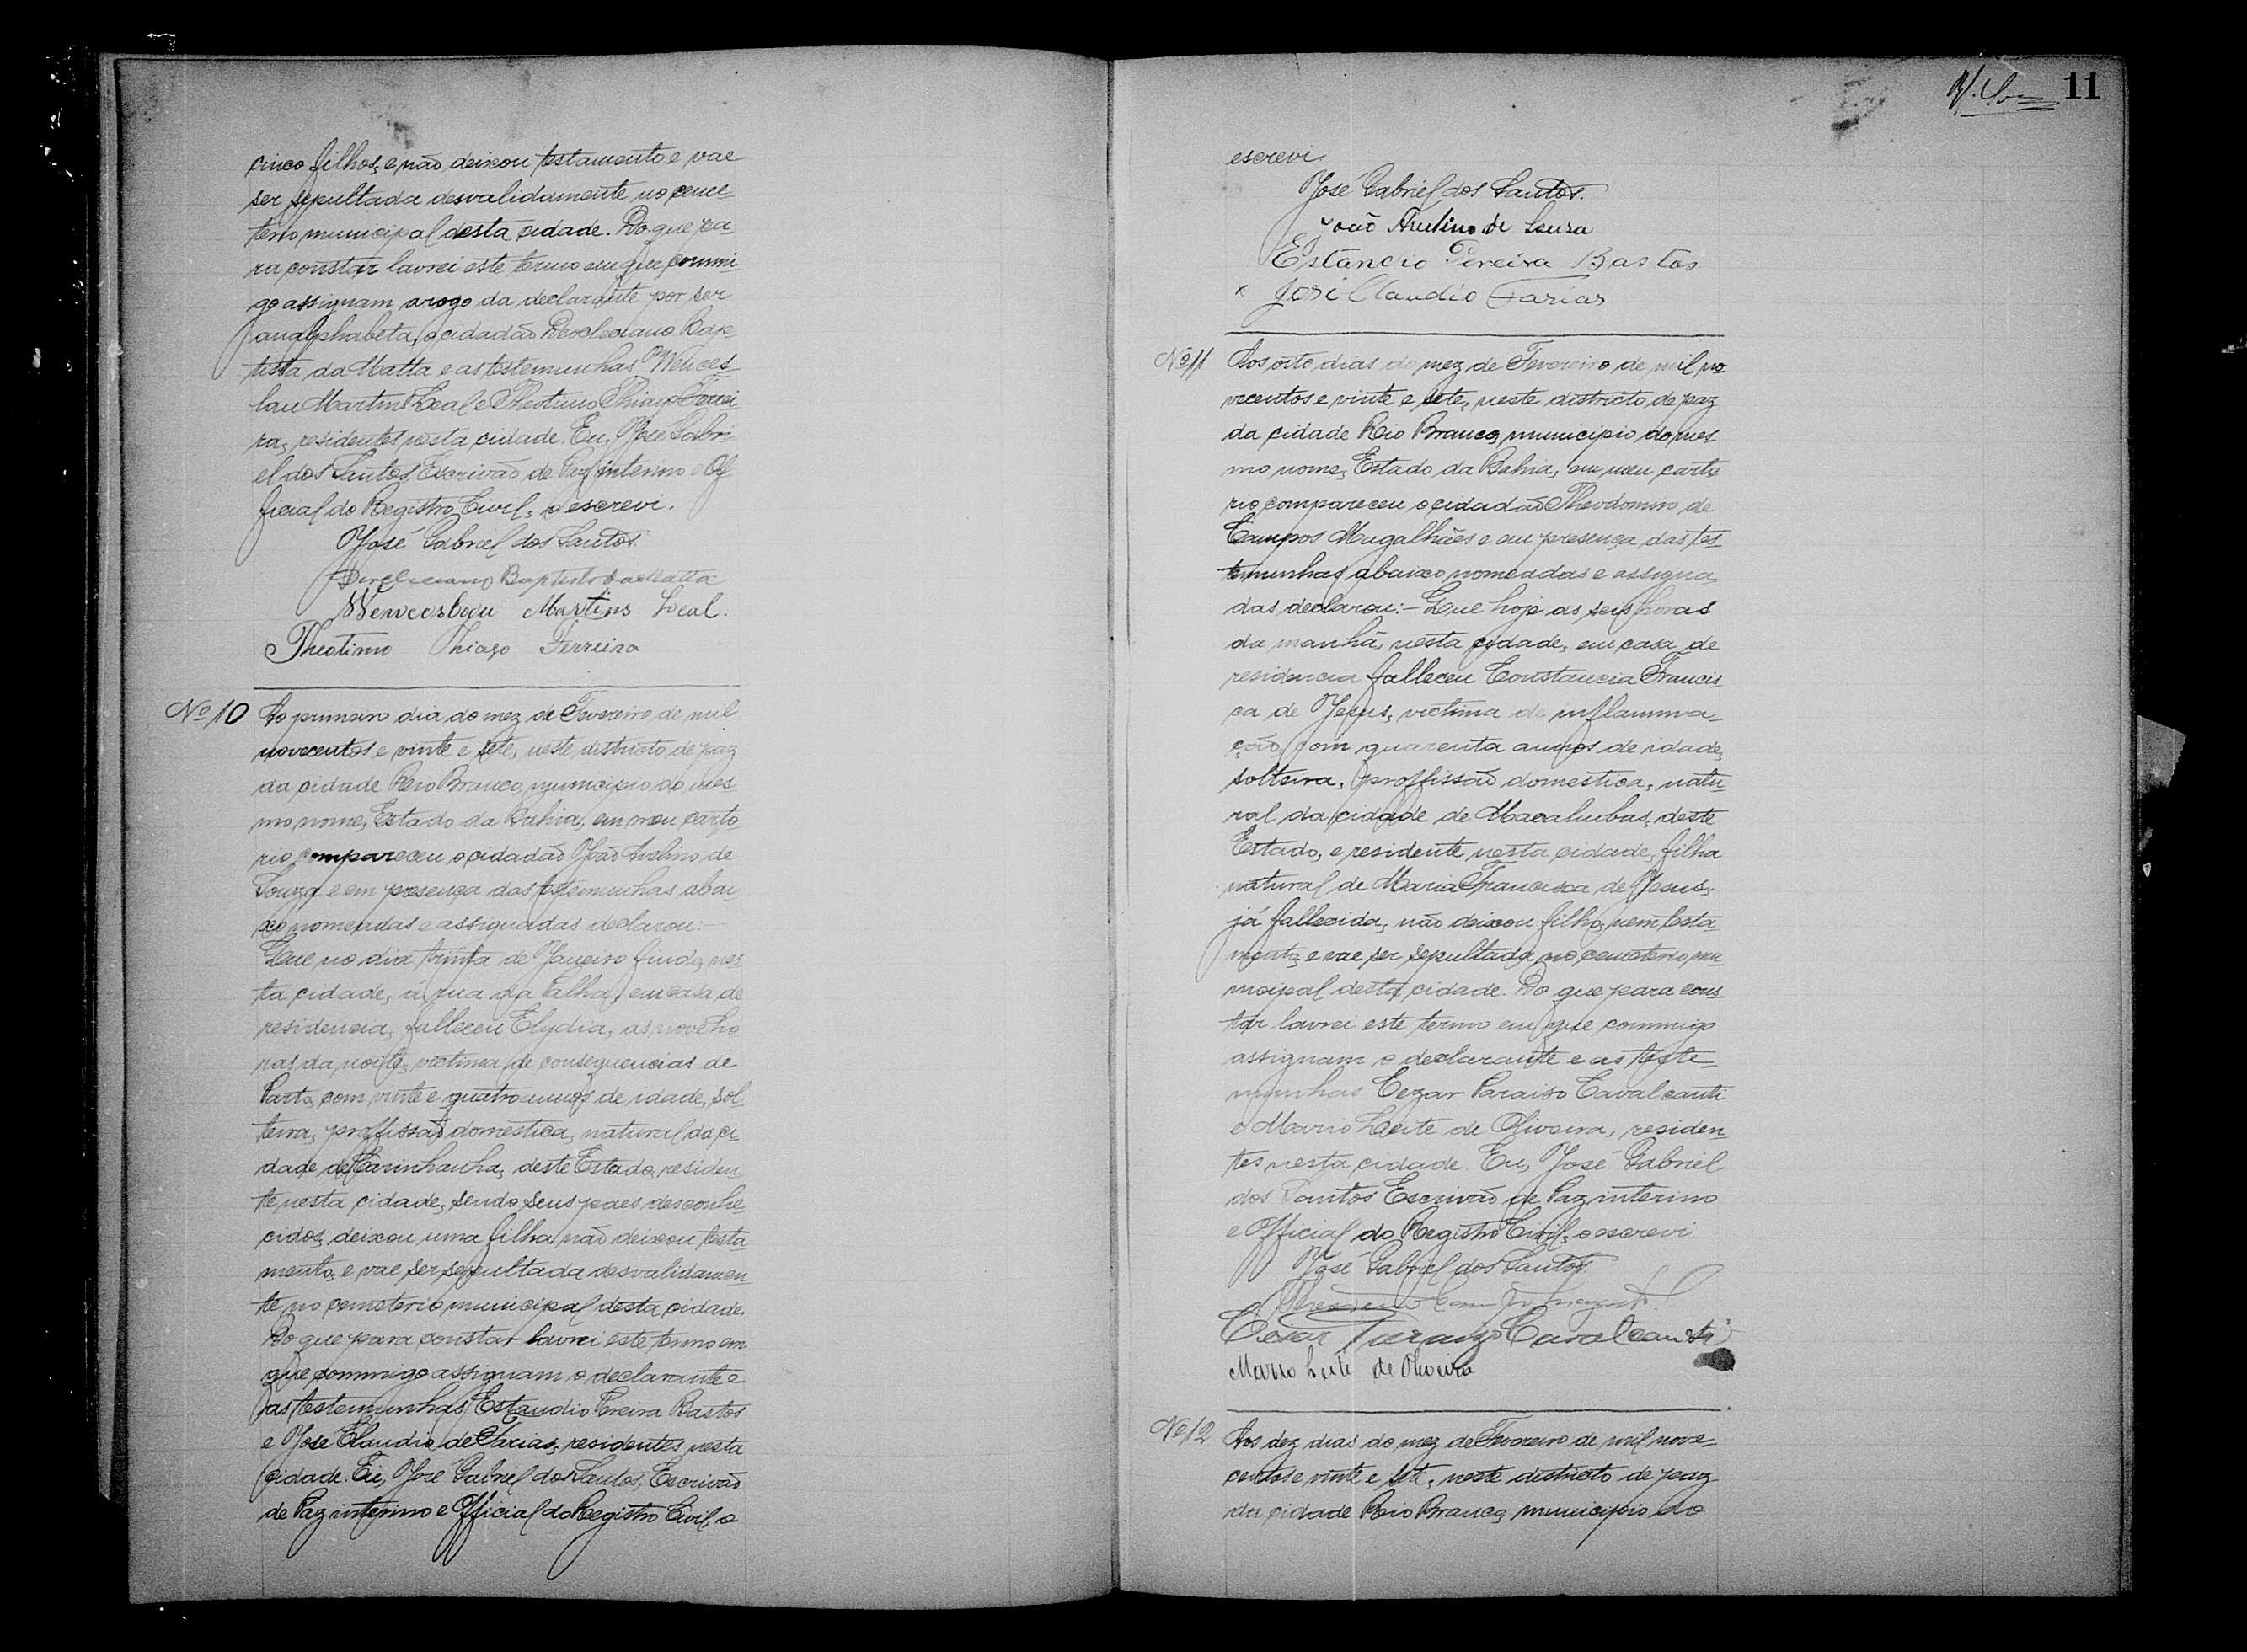 cinco filhos, e não deixou testamento e vae
ser sepultada desvalidamente no ceme-
terio municipal desta cidade. Do que pa-
ra constar lavrei este termo em que commi
go assignam arogo da declarante por ser
analphabeta, o cidadão Deocleciano Bap-
tista da Matta e as testemunhas Wences-
lau Martins Leal e Theotimo Thiago Ferrei
ra, residentes nesta cidade. Eu, José Gabri-
el dos Santos, Escrivão de Paz interino e Of
ficial do Registro Civil, o escrevi.
José Gabriel dos Santos.
Deocleciano Baptista da Matta
Martins Leal.
Theotimo Thiago Ferreira
Nº 10 Ao primeiro dia do mez de Fevereiro de mil
novecentos e vinte e sete, neste districto de paz
da cidade Rio Branco, municipio do mes
mo nome, Estado da Bahia, em meu carto
rio compareceu o cidadão João Avelino de
Souza e em presença das testemunhas abai
xo nomeadas e assignadas declarou:-
Que no dia trinta de Janeiro findo, nes
ta cidade, á rua da Palha, em casa de
residencia, falleceu Elydia, as nove ho
ras da noite, victima de consequencias de
Parto, com vinte e quatro annos de idade, sol
teira, proffissão domestica, natural da ci-
dade de Carinhanha, deste Estado, residen
te nesta cidade, sendo seus paes desconhe-
cidos, deixou uma filha não deixou testa-
mento, e vae ser sepultada desvalidamen
te no cemeterio municipal desta cidade.
Do que para constar lavrei este termo em
que commigo assignam o declarante e
as testemunhas Estandio Pereira Bastos
e José Claudio de Farias, residentes nesta
cidade. Eu, José Gabriel dos Santos, Escrivão
de Paz interino e Official do Registro Civil, o
11
escrevi.
José Gabriel dos Santos.
João de Sousa
Estancio Pereira Bastos
José Claudio Farias
Nº 11 Aos oito dias do mez de Fevereiro de mil no
vecentos e vinte e sete, neste districto de paz
da cidade Rio Branco, municipio do mes
mo nome, Estado da Bahia, em meu carto
rio compareceu o cidadão Theodomiro de
Campos Magalhães e em presença das tes
temunhas abaixo nomeadas e assigna
das declarou:- Que hoje as seis horas
da manhã, nesta cidade, em casa de
residencia falleceu Constancia Francis
ca de Jesus, victima de inflamma-
ção, com quarenta annos de idade,
solteira, proffissão domestica, natu-
ral da cidade de Macahubas, deste
Estado, e residente nesta cidade, filha
natural de Maria Francisca de Jesus,
já fallecida, não deixou filho, nem testa-
mento, e vae ser sepultada no cemeterio mu-
nicipal desta cidade. Do que para cons-
tar lavrei este termo em que commigo
assignam o declarante e as teste-
munhas Cezar Paraiso Cavalcanti
e Mario Leite de Oliveira, residen-
tes nesta cidade. Eu, José Gabriel
dos Santos Escrivão de Paz interino
e Official do Registro Civil, o escrevi.
José Gabriel dos Santos
Cesar Paraizo Cavalcanti
Mario Leite de Oliveira
Nº 12 Aos dez dias do mez de Fevereiro de mil nove-
centos e vinte e sete, neste districto de paz
da cidade Rio Branco, municipio do